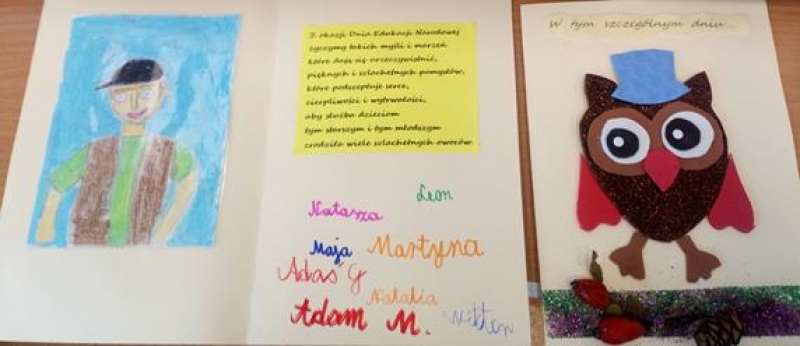 Z okazji Dnia Edukacji Narodowej
życzymy takich myśli i marzeń
które dają się urzeczywistnić,
pięknych i szlachetnych pomysłów,
które podszeptuje serce,
cierpliwości i wytrwałości,
aby służba dzieciom
tym starszym i tym młodszym
zrodziła wiele szlachetnych owoców.
Leon
Natasza
Maja Martyna
Adaś G
Natalia
Adam M. Wiktor
W tym szczególnym dniu...